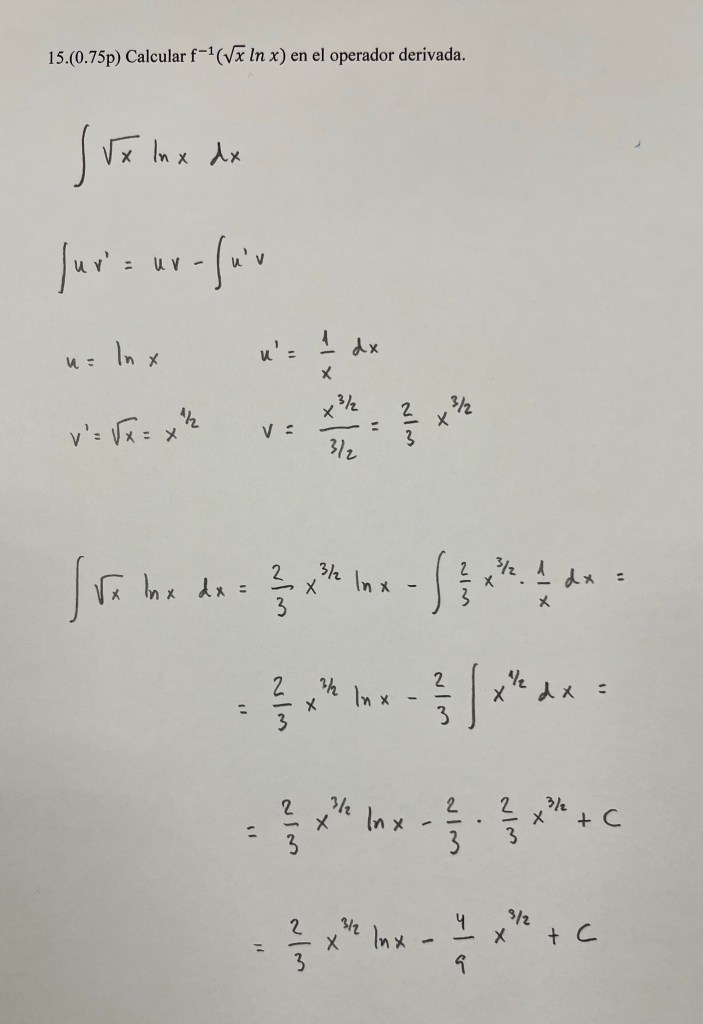 15.(0.75p) Calcular f⁻¹(√x ln x) en el operador derivada.
∫ √x ln x dx
∫ u v' = u v - ∫ u' v
u = ln x u' = 1/x dx
v' = √x = x^(1/2) v = x^(3/2) / 3/2 = 2/3 x^(3/2)
∫ √x ln x dx = 2/3 x^(3/2) ln x - ∫ 2/3 x^(3/2) · 1/x dx =
= 2/3 x^(3/2) ln x - 2/3 ∫ x^(1/2) dx =
= 2/3 x^(3/2) ln x - 2/3 · 2/3 x^(3/2) + C
= 2/3 x^(3/2) ln x - 4/9 x^(3/2) + C